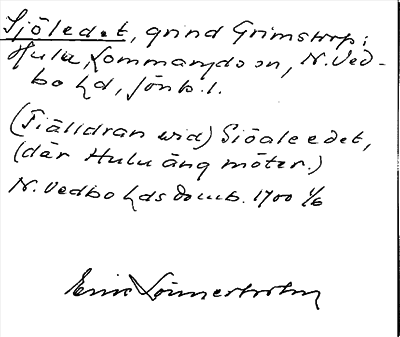 Sjöledet, grind Grimstorp;
Hulu, Lommaryds sn, N. Ved-
bo hd, Jönk. l.
(Fiälldran wid) Siöaleedet,
(där Hulu äng möter.)
N. Vedbo hds domb. 1700 1/6
Erik Lönnerholm